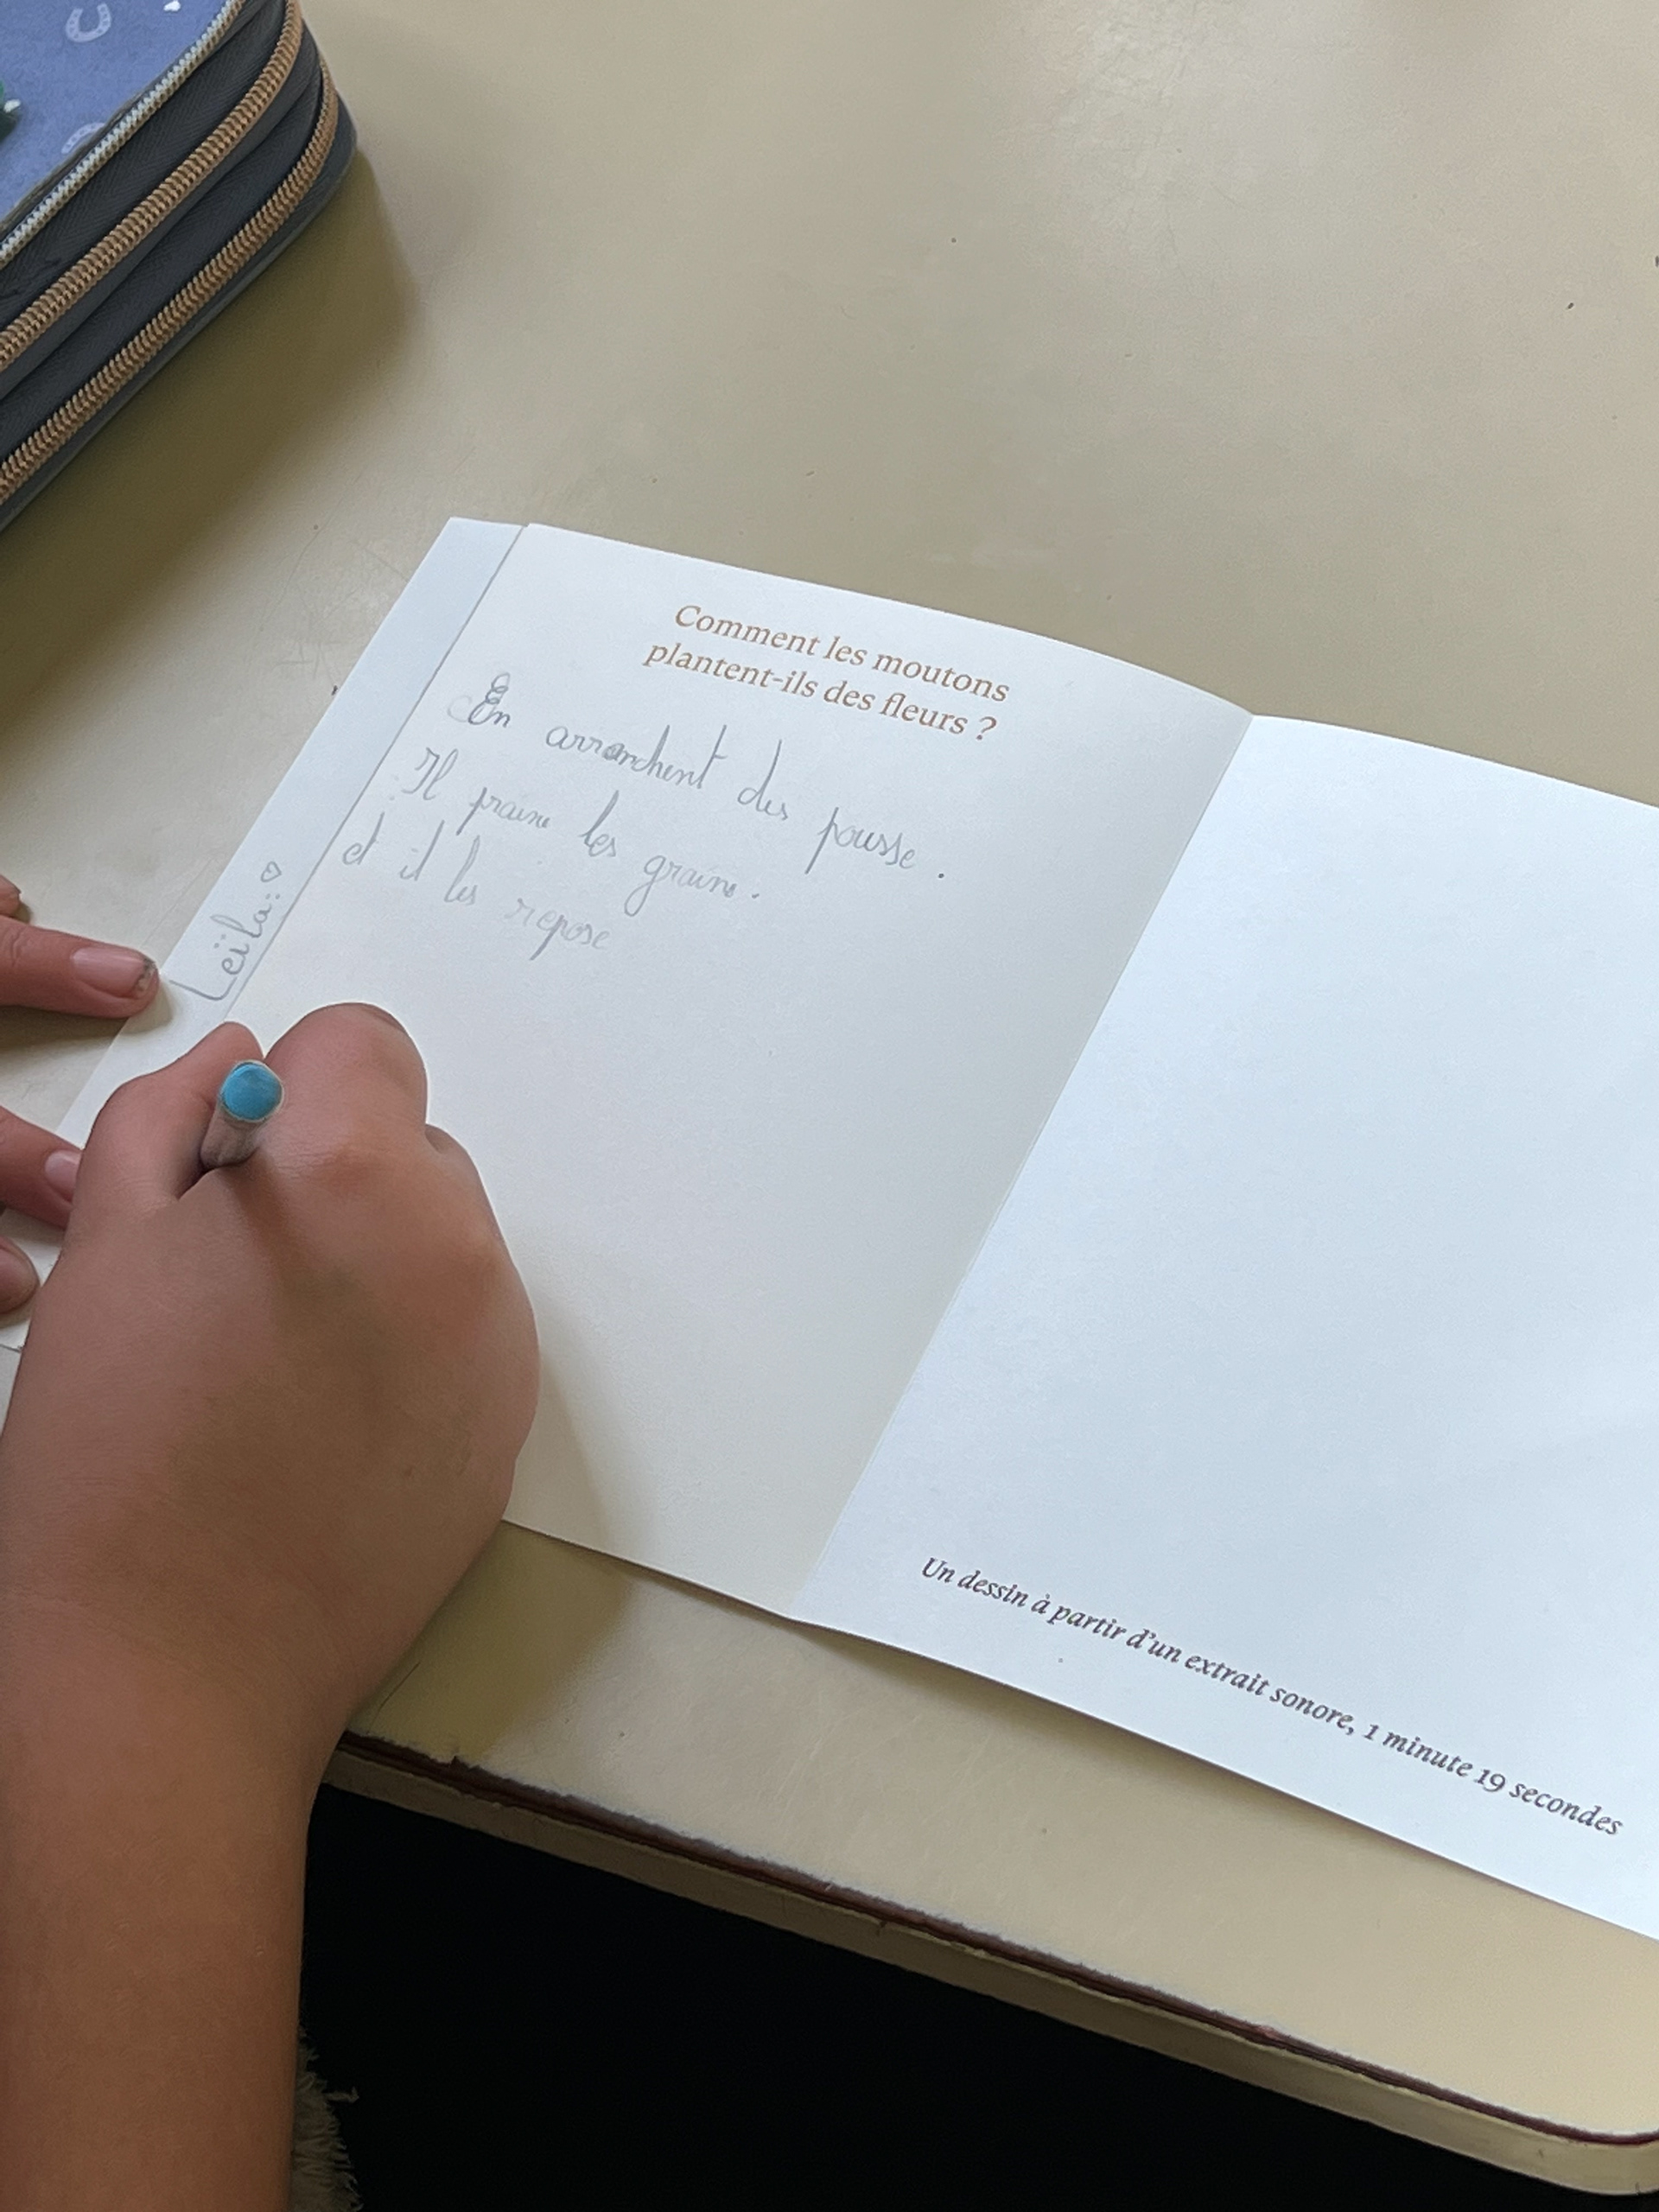 Comment les moutons
plantent-ils des fleurs ?
En arranchent des pousse .
Il praine les graine.
et il les repose
Leïla
Un dessin à partir d'un extrait sonore, 1 minute 19 secondes